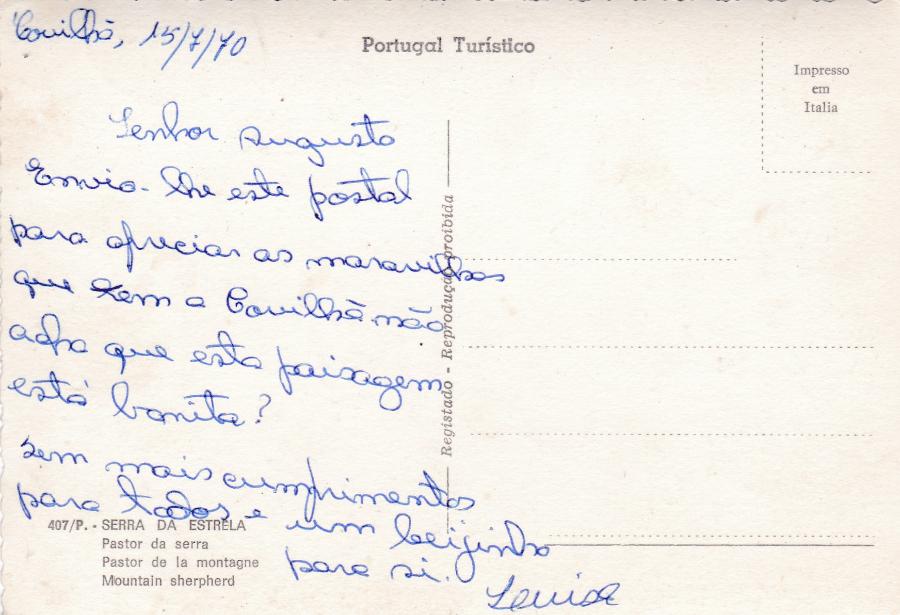 Covilhã, 15/7/70
Portugal Turístico
Impresso
em
Italia
Senhor Augusto
Envio-lhe este postal
para apreciar as maravilhas
que tem a Covilhã não
acha que esta paisagem
está bonita?
Sem mais cumprimentos
para todos e um beijinho
para si.
Luisa
Registado - Reprodução proibida
407/P. - SERRA DA ESTRELA
Pastor da serra
Pastor de la montagne
Mountain sherpherd